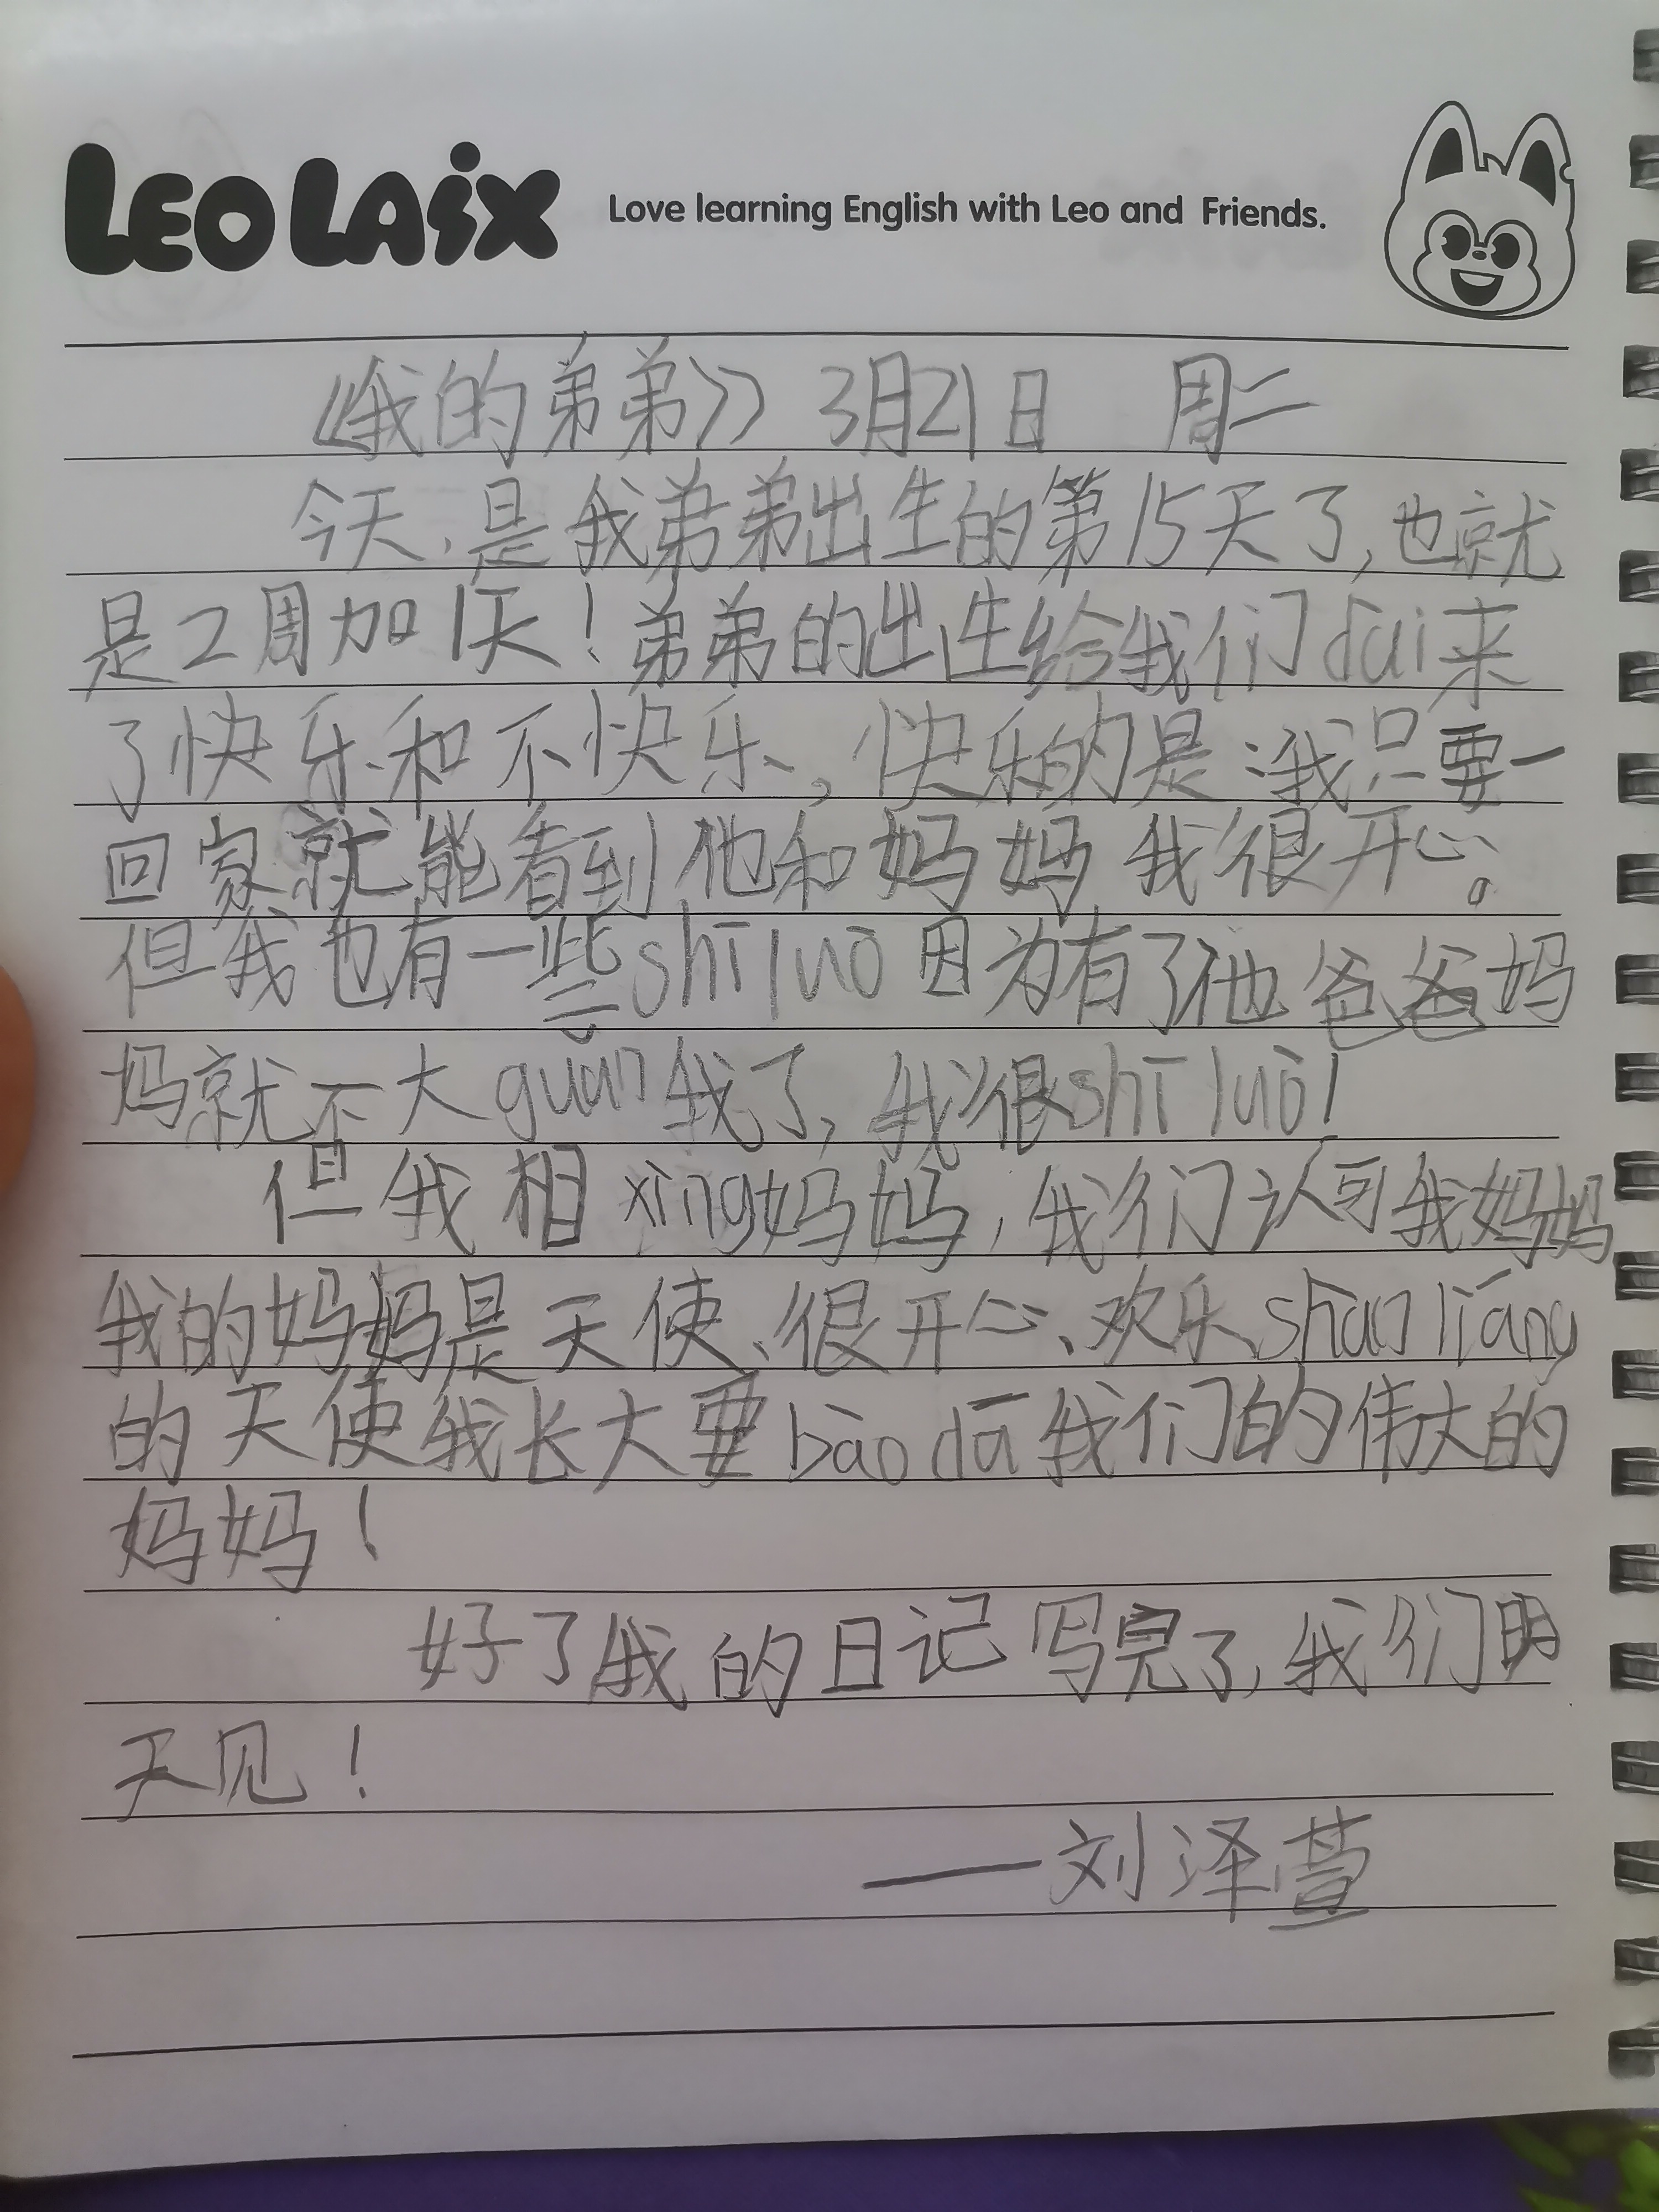 LEO LAiX Love learning English with Leo and Friends.
《我的弟弟》 3月21日 周二
今天,是我弟弟出生的第15天了,也就
是2周加1天!弟弟的出生给我们dai来
了快乐和不快乐。快乐的是:我只要一
回家就能看到他和妈妈 我很开心。
但我也有一些shī luò 因为有了他爸爸妈
妈就不大guan我了,我很shī luō!
但我相xing妈妈,我们认可我妈妈
我的妈妈是天使、很开心、欢乐、shān liáng
的天使我长大要bào dā我们的伟大的
妈妈!
好了我的日记写完了,我们明
天见!
——刘泽萱